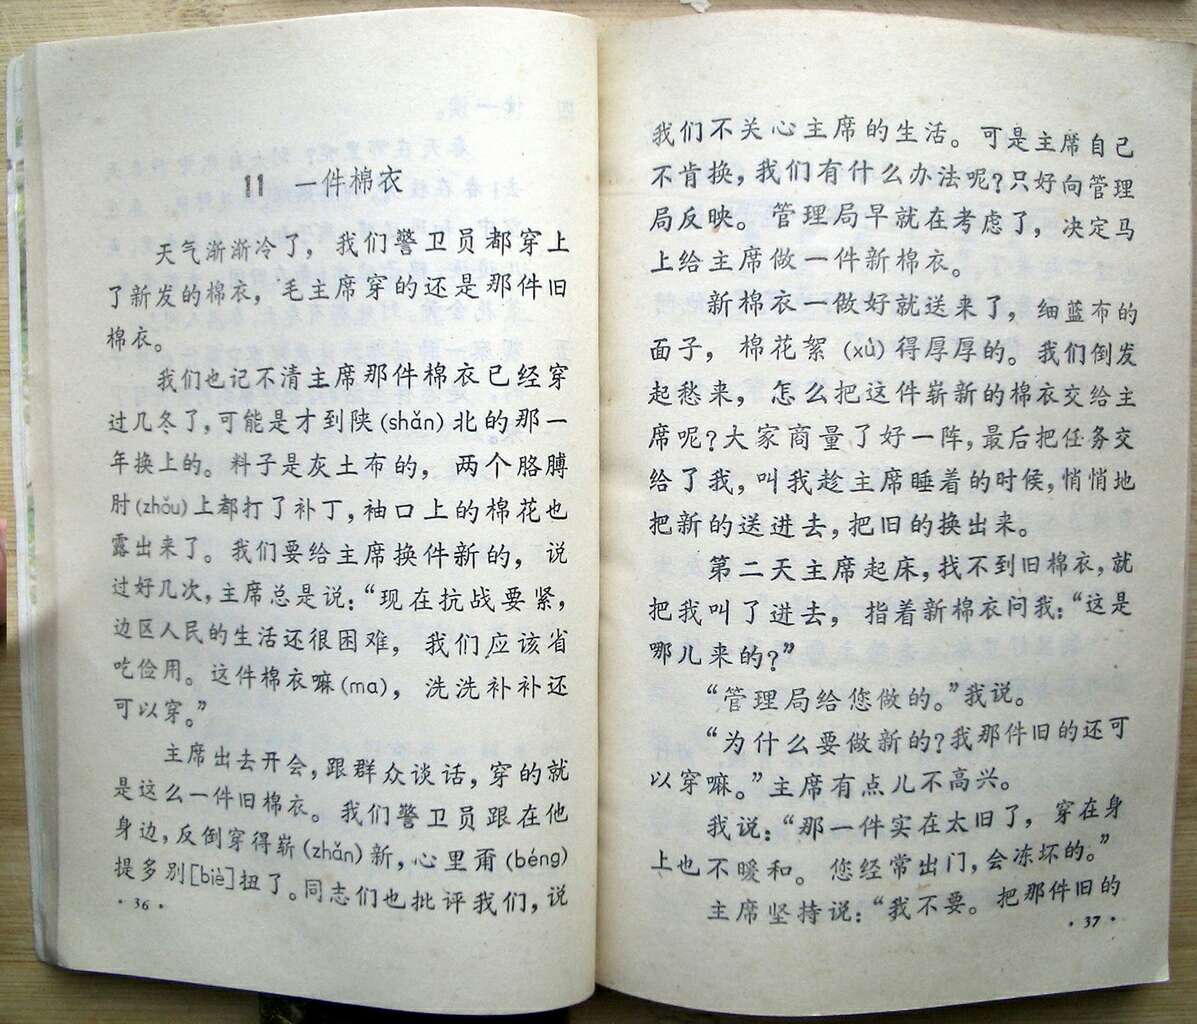 11 一件棉衣
天气渐渐冷了，我们警卫员都穿上
了新发的棉衣，毛主席穿的还是那件旧
棉衣。
我们也记不清主席那件棉衣已经穿
过几冬了，可能是才到陕(shǎn)北的那一
年换上的。料子是灰土布的，两个胳膊
肘(zhǒu)上都打了补丁，袖口上的棉花也
露出来了。我们要给主席换件新的，说
过好几次，主席总是说：“现在抗战要紧，
边区人民的生活还很困难，我们应该省
吃俭用。这件棉衣嘛(ma)，洗洗补补还
可以穿。”
主席出去开会，跟群众谈话，穿的就
是这么一件旧棉衣。我们警卫员跟在他
身边，反倒穿得崭(zhǎn)新，心里甭(béng)
提多别[biè]扭了。同志们也批评我们，说
·36·
我们不关心主席的生活。可是主席自己
不肯换，我们有什么办法呢？只好向管理
局反映。管理局早就在考虑了，决定马
上给主席做一件新棉衣。
新棉衣一做好就送来了，细蓝布的
面子，棉花絮(xù)得厚厚的。我们倒发
起愁来，怎么把这件崭新的棉衣交给主
席呢？大家商量了好一阵，最后把任务交
给了我，叫我趁主席睡着的时候，悄悄地
把新的送进去，把旧的换出来。
第二天主席起床，找不到旧棉衣，就
把我叫了进去，指着新棉衣问我：“这是
哪儿来的？”
“管理局给您做的。”我说。
“为什么要做新的？我那件旧的还可
以穿嘛。”主席有点儿不高兴。
我说：“那一件实在太旧了，穿在身
上也不暖和。您经常出门，会冻坏的。”
主席坚持说：“我不要。把那件旧的
·37·